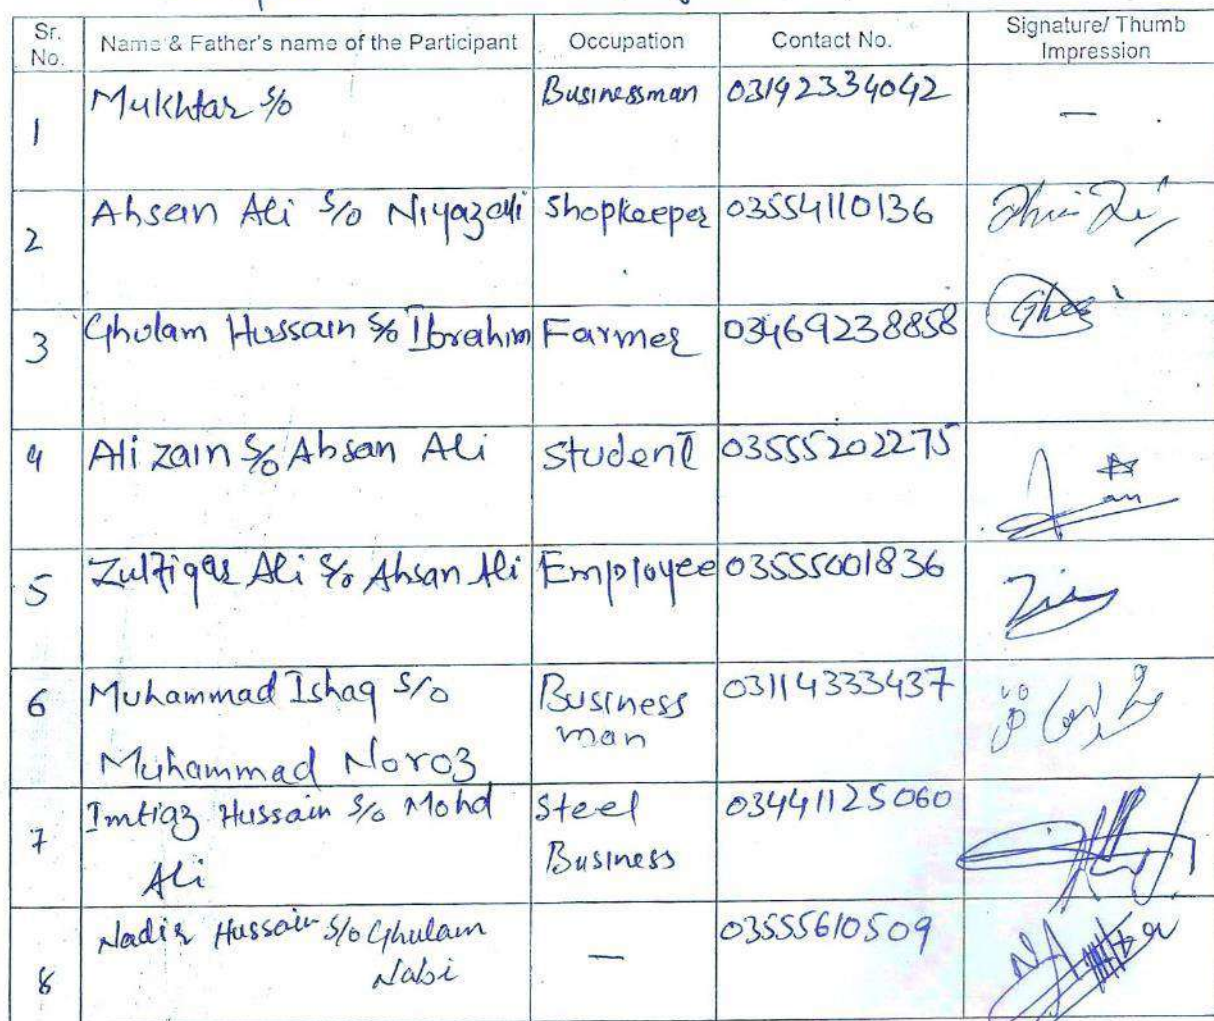 Sr. No. Name & Father's name of the Participant Occupation Contact No. Signature/ Thumb Impression
1 Mukhtar S/o Businessman 03192334042 —
2 Ahsan Ali S/o Niyaz Ali Shopkeeper 03554110136
3 Ghulam Hussain S/o Ibrahim Farmer 03469238858
4 Ali zain S/o Ahsan Ali Student 03555202275
5 Zulfiqar Ali S/o Ahsan Ali Employee 03555001836
6 Muhammad Ishaq S/o Business 03114333437
Muhammad Noroz man
7 Imtiaz Hussain S/o Mohd Steel 03441125060
Ali Business
8 Nadir Hussain S/o Ghulam — 03555610509
Nabi